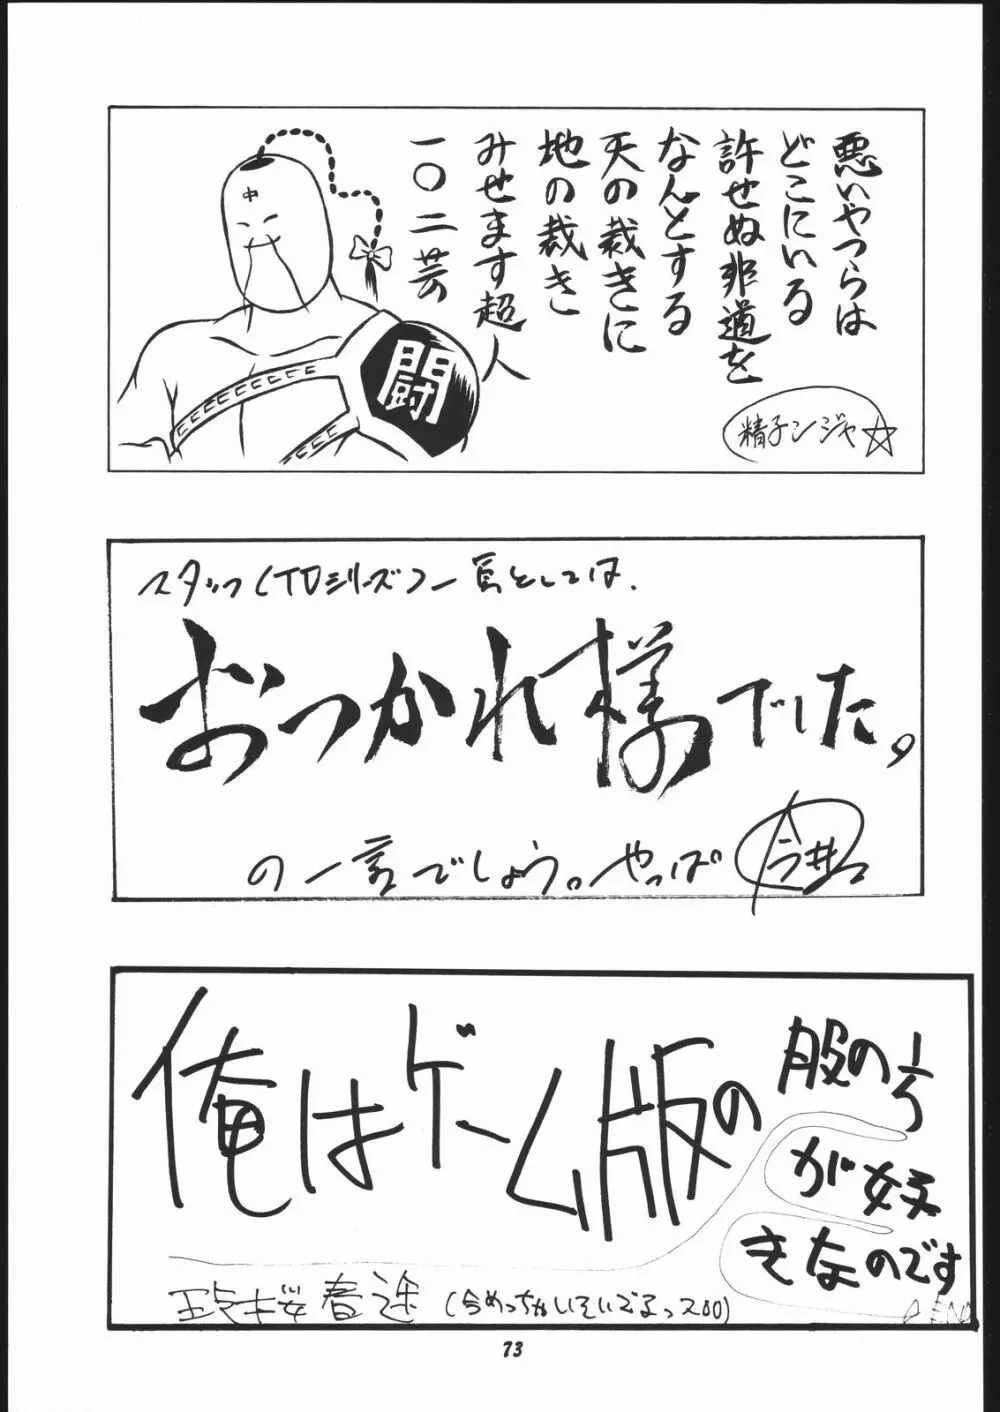 悪いやつらは
どこにいる
許せぬ非道を
なんとする
天の裁きに
地の裁き
みせます超人
一〇二芸
中
闘
精子ンジャ☆
スタッフ(TDシリーズ)一員としては、
おつかれ様でした。
の一言でしょう。やっぱ
今井
俺はゲーム版の
服の方
が好
きなのです
桜春途(今めっちゃいそいでるっスOO)
END
73